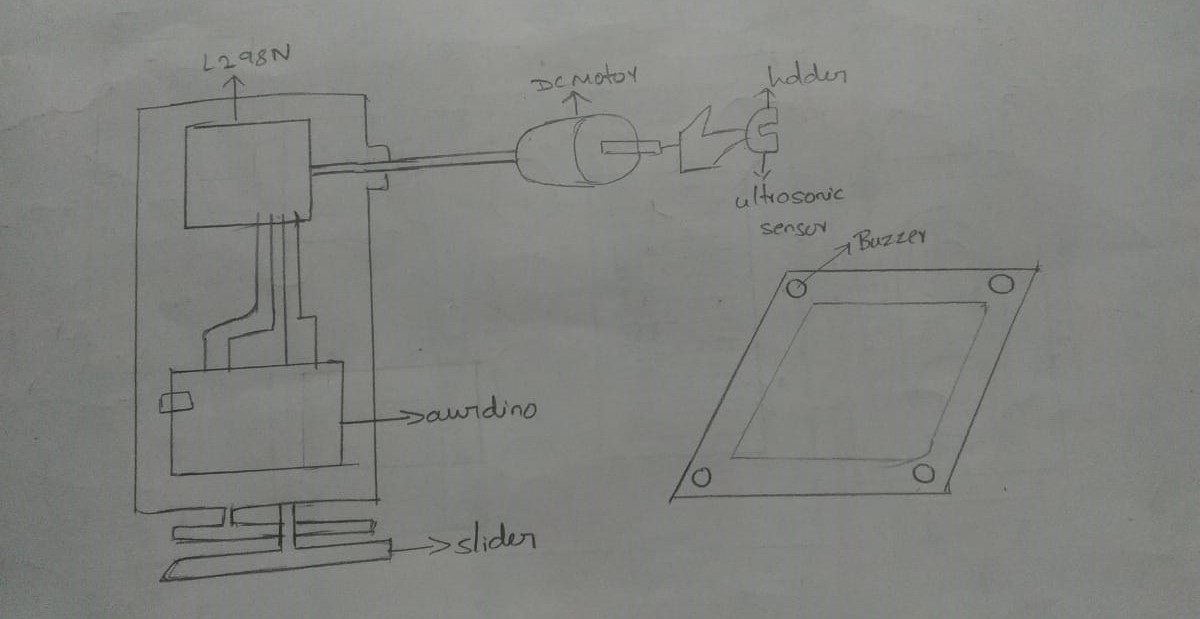 L298N
DC Motor
holder
ultrasonic
sensor
Buzzer
aurdino
slider